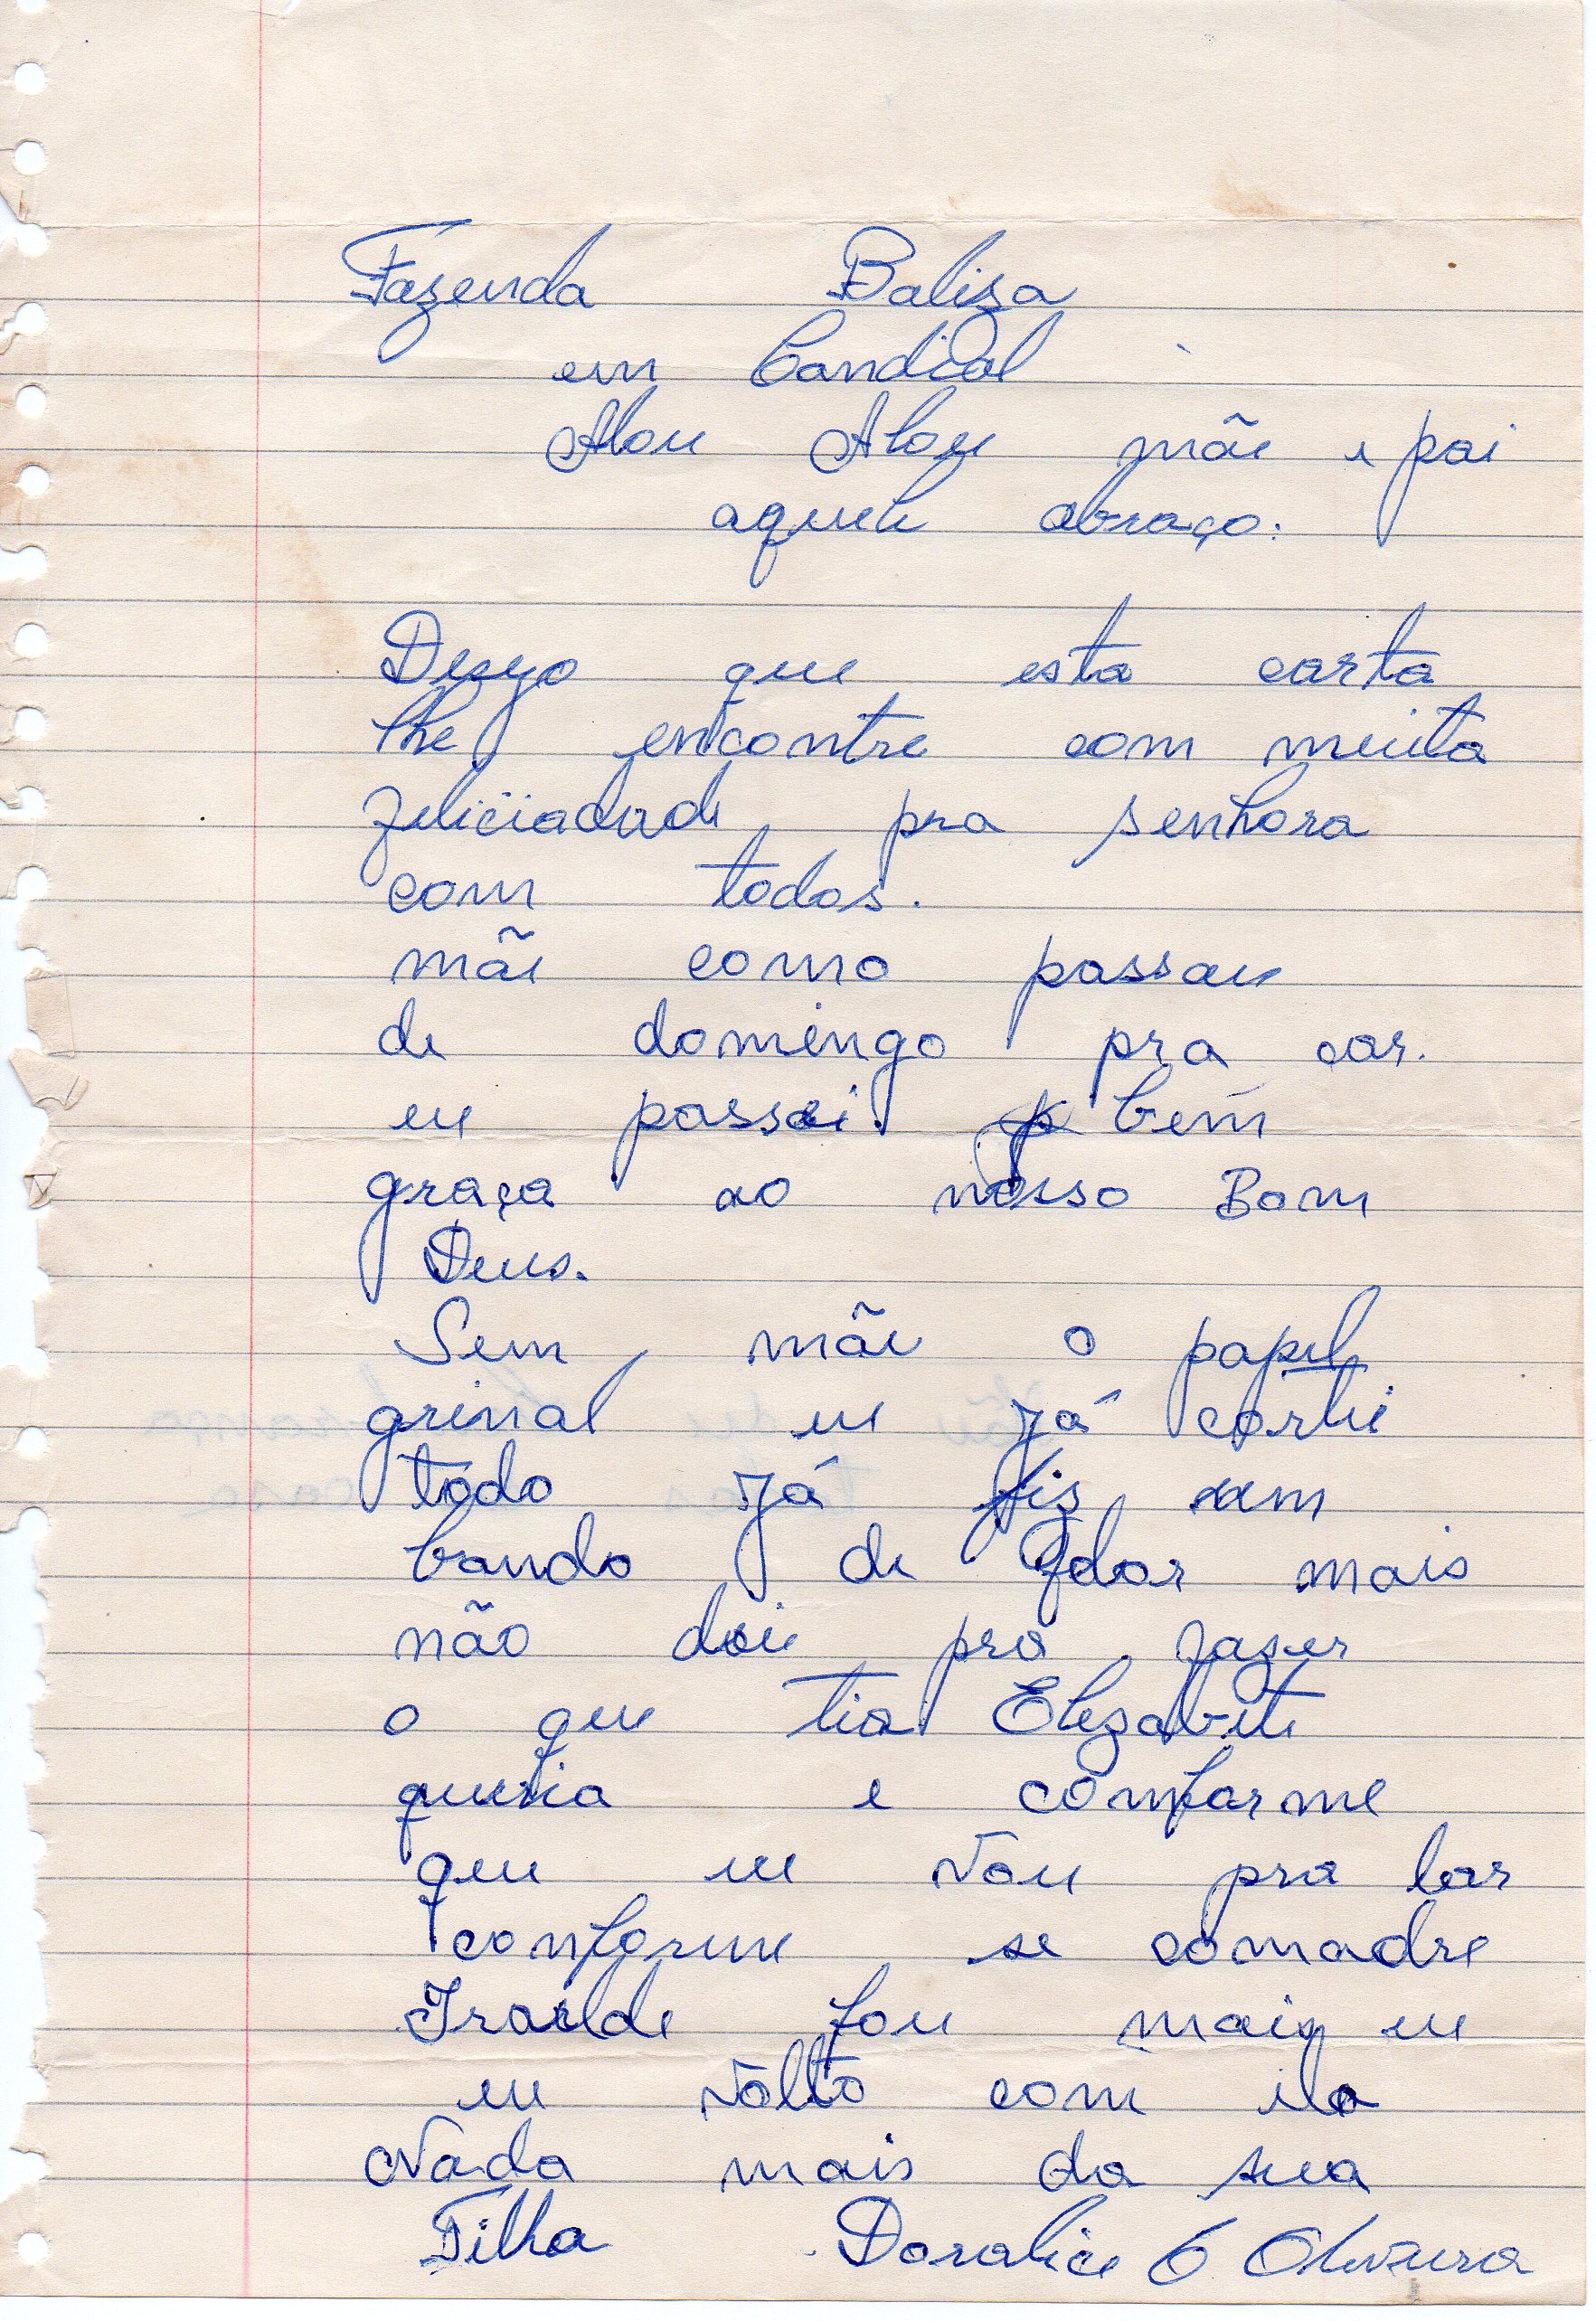 Fazenda Baliza
em Candial
Alou Alou mãe e pai
aquele abraço:
Dezejo que esta carta
lhe encontre com muita
feliciadade pra senhora
com todos.
mãe como passou
de domingo pra car.
eu passei bem
graça ao nosso Bom
Deus.
Sem mãe o papel
grinal eu já corlei
todo já fis um
bando de felor mais
não deu pra fazer
o que tia Elizabete
queria e comforme
que eu vou pra lar
comforme se comadre
Irailde fou mais eu
eu vollto com ela
Nada mais da sua
Filha Doralice C Oliveira